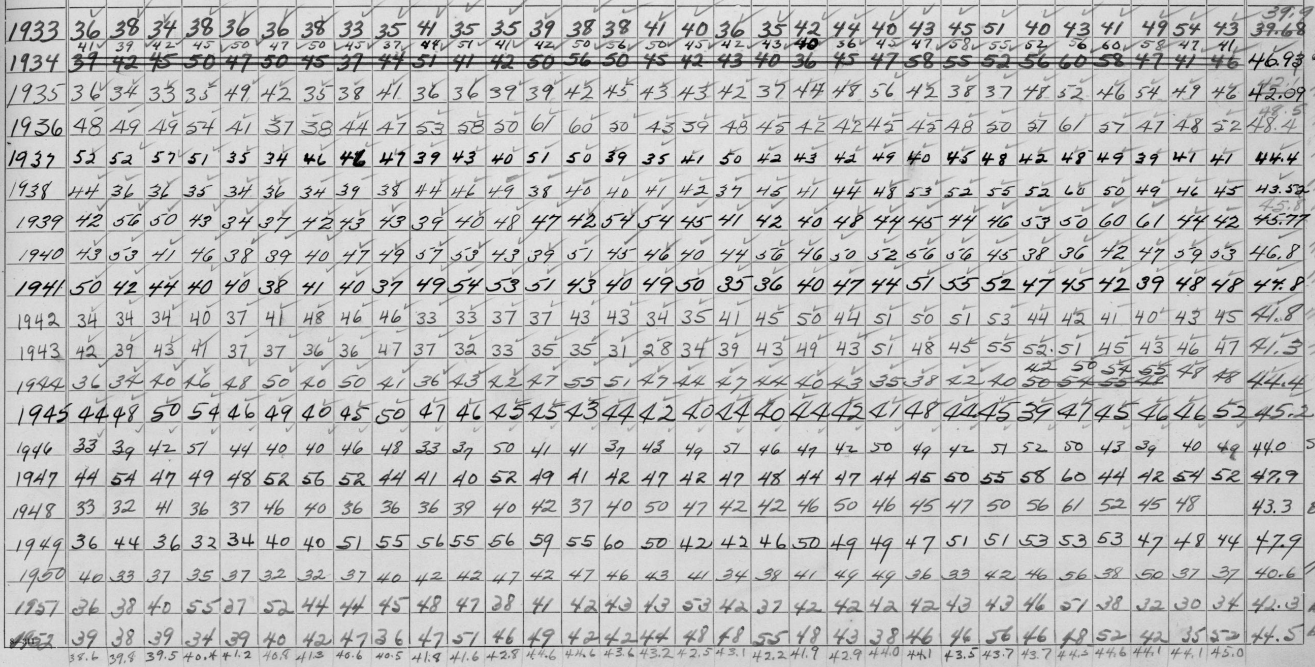 39.9
1933 36 38 34 38 36 36 38 33 35 41 35 35 39 38 38 41 40 36 35 42 44 40 43 45 51 40 43 41 49 54 43 39.68
41 39 42 45 50 47 50 45 37 44 51 41 42 50 56 50 45 42 43 40 36 45 47 58 55 52 56 60 58 47 41
1934 39 42 45 50 47 50 45 37 44 51 41 42 50 56 50 45 42 43 40 36 45 47 58 55 52 56 60 58 47 41 46 46.93
1935 36 34 33 35 49 42 35 38 41 36 36 39 39 42 45 43 43 42 37 44 48 56 42 38 37 48 52 46 54 49 46 42.09
48.5
1936 48 49 49 54 41 37 38 44 47 53 58 50 61 60 50 43 39 48 45 42 42 45 45 48 50 57 61 57 47 48 52 48.4
1937 52 52 57 51 35 34 46 46 47 39 43 40 51 50 39 35 41 50 42 43 42 49 40 45 48 42 48 49 39 41 41 44.4
1938 44 36 36 35 34 36 34 39 38 44 46 49 38 40 40 41 42 37 45 41 44 48 53 52 55 52 60 50 49 46 45 43.52
45.8
1939 42 56 50 43 34 37 42 43 43 39 40 48 47 42 54 54 45 41 42 40 48 44 45 44 46 53 50 60 61 44 42 45.77
1940 43 53 41 46 38 39 40 47 49 57 53 43 39 51 45 46 40 44 56 46 50 52 56 56 45 38 36 42 47 59 53 46.8
1941 50 42 44 40 40 38 41 40 37 49 54 53 51 43 40 49 50 35 36 40 47 44 51 55 52 47 45 42 39 48 48 44.8
1942 34 34 34 40 37 41 48 46 46 33 33 37 37 43 43 34 35 41 45 50 44 51 50 51 53 44 42 41 40 43 45 41.8
1943 42 39 43 41 37 37 36 36 47 37 32 33 35 35 31 28 34 39 43 49 43 51 48 45 55 52 51 45 43 46 47 41.3
42 50 54 55
1944 36 34 40 46 48 50 40 50 41 36 43 42 47 55 51 47 44 47 44 40 43 35 38 42 40 50 54 55 48 48 44.4
1945 44 48 50 54 46 49 40 45 50 47 46 45 45 43 44 42 40 44 40 44 42 41 48 44 45 39 47 45 46 46 52 45.2
1946 33 39 42 51 44 40 40 46 48 33 37 50 41 41 37 43 49 51 46 47 42 50 49 42 51 52 50 43 39 40 49 44.0
1947 44 54 47 49 48 52 56 52 44 41 40 52 49 41 42 47 42 47 48 44 47 44 45 50 55 58 60 44 42 54 52 47.9
1948 33 32 41 36 37 46 40 36 36 36 39 40 42 37 40 50 47 42 42 46 50 46 45 47 50 56 61 52 45 48 43.3
1949 36 44 36 32 34 40 40 51 55 56 55 56 59 55 60 50 42 42 46 50 49 49 47 51 51 53 53 53 47 48 44 47.9
1950 40 33 37 35 37 32 32 37 40 42 42 47 42 47 46 43 41 34 38 41 49 49 36 33 42 46 56 38 50 37 37 40.6
1951 36 38 40 55 37 52 44 44 45 48 47 38 41 42 43 43 53 42 37 42 42 42 42 43 43 46 51 38 32 30 34 42.3
1952 39 38 39 34 39 40 42 47 36 47 51 46 49 42 42 44 48 48 55 48 43 38 46 46 56 46 48 52 42 35 52 44.5
38.6 39.8 39.5 40.4 41.2 40.8 41.3 40.6 40.5 41.8 41.6 42.8 44.6 44.6 43.6 43.2 42.5 43.1 42.2 41.9 42.9 44.0 44.1 43.5 43.7 43.7 44.5 44.6 44.1 44.1 45.0